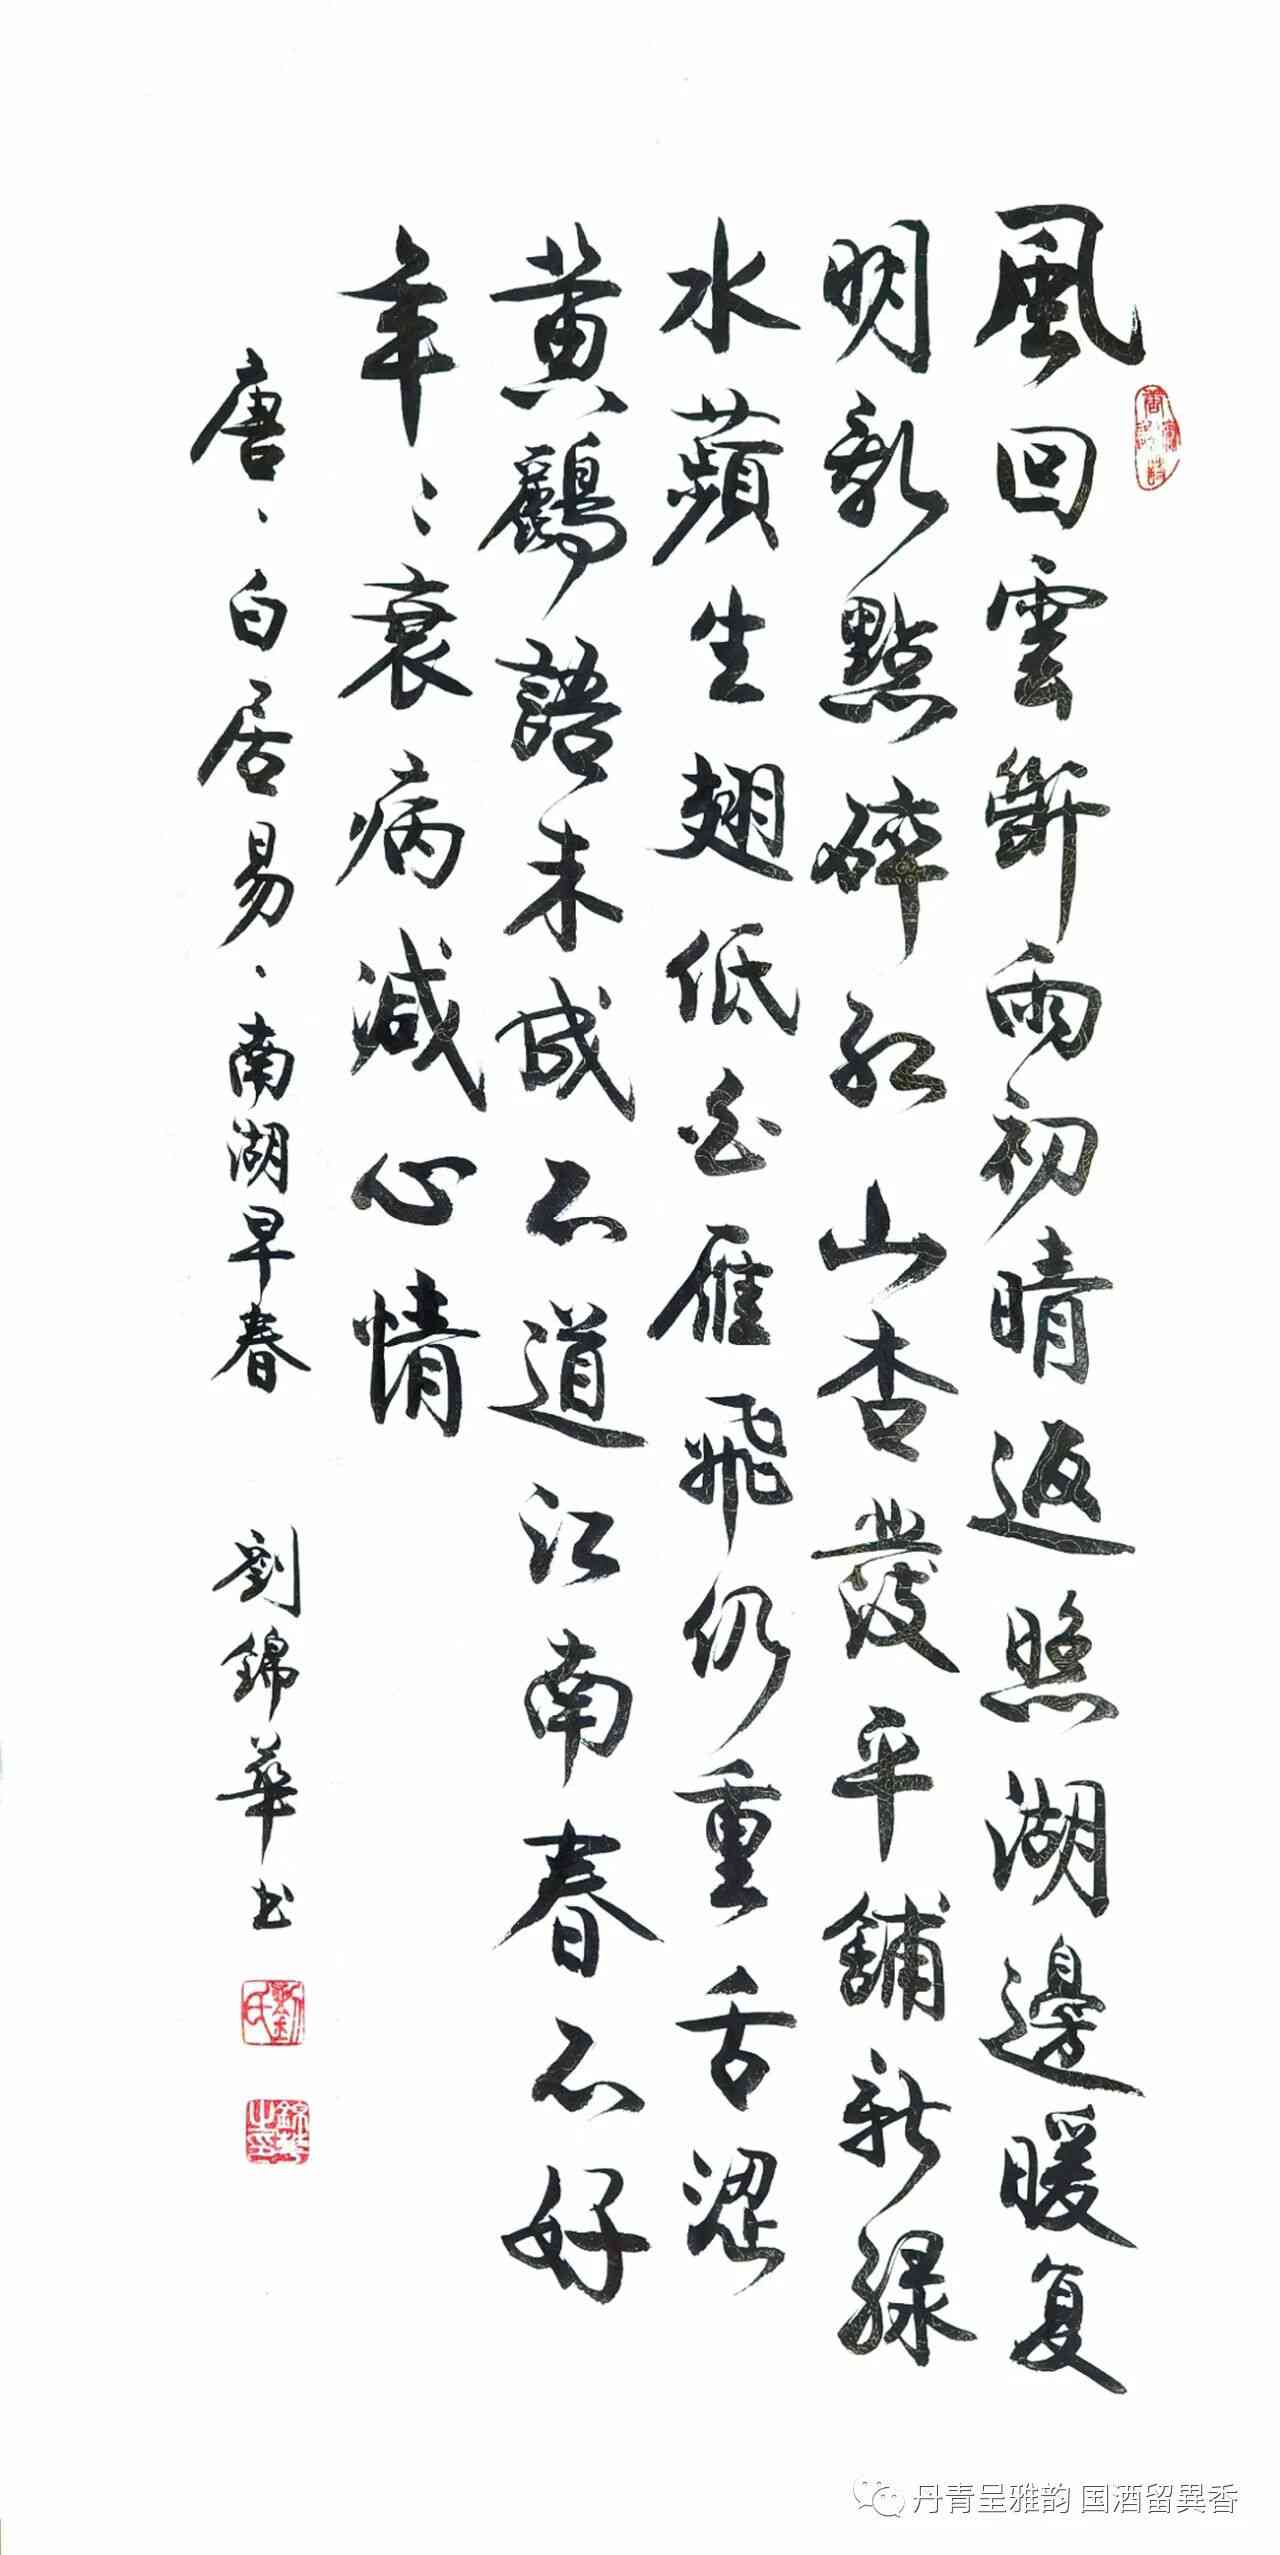 風回雲斷雨初晴返照湖邊暖复
明亂點碎紅山杏發平鋪新綠
水蘋生翅低白雁飛仍重舌澀
黄鸝語未成不道江南春不好
年〻衰病減心情
唐、白居易、南湖早春 劉錦華书
劉氏
錦華之印
丹青呈雅韵 国酒留異香